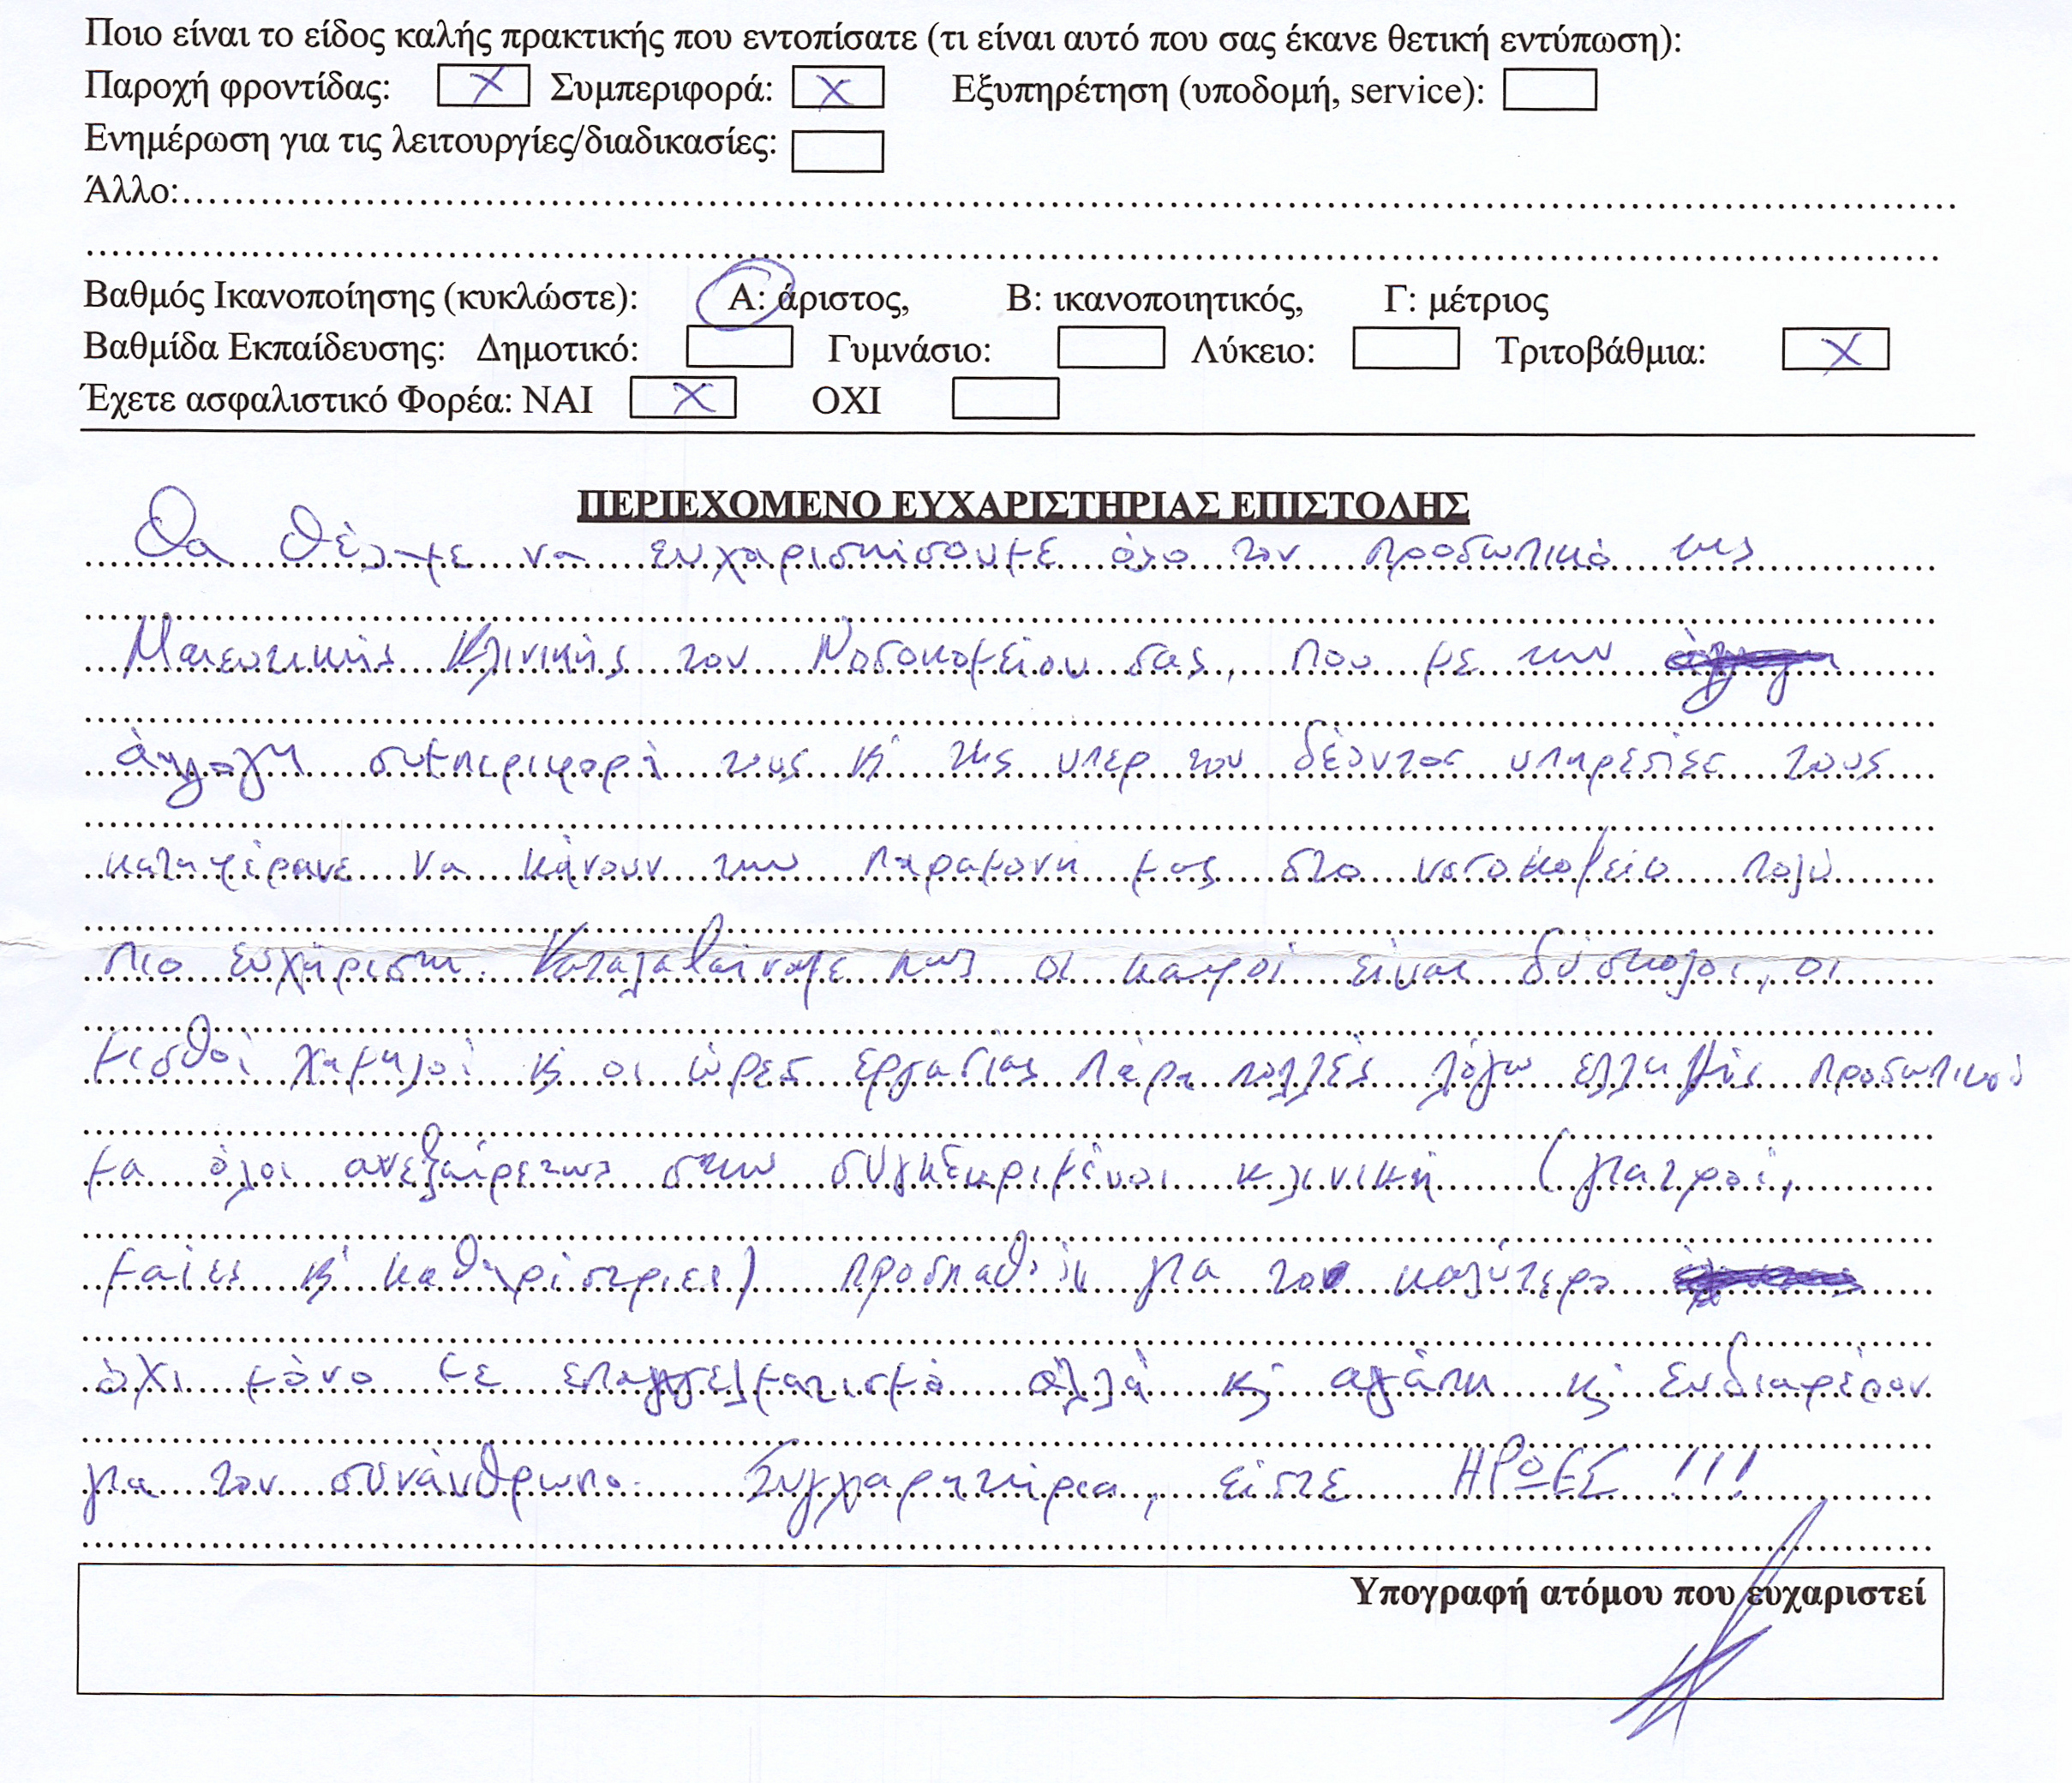 Ποιο είναι το είδος καλής πρακτικής που εντοπίσατε (τι είναι αυτό που σας έκανε θετική εντύπωση):
Παροχή φροντίδας: X Συμπεριφορά: X Εξυπηρέτηση (υποδομή, service):
Ενημέρωση για τις λειτουργίες/διαδικασίες:
Άλλο:
Βαθμός Ικανοποίησης (κυκλώστε): Α: άριστος, Β: ικανοποιητικός, Γ: μέτριος
Βαθμίδα Εκπαίδευσης: Δημοτικό: Γυμνάσιο: Λύκειο: Τριτοβάθμια: X
Έχετε ασφαλιστικό Φορέα: ΝΑΙ X ΟΧΙ
ΠΕΡΙΕΧΟΜΕΝΟ ΕΥΧΑΡΙΣΤΗΡΙΑΣ ΕΠΙΣΤΟΛΗΣ
Θα θέλαμε να ευχαριστήσουμε όλο τον προσωπικό της
Μαιευτικής Κλινικής του Νοσοκομείου σας, που με την
άψογη συμπεριφορά τους κ' της υπερ του δέοντος υπηρεσίες τους
καταφέρανε να κάνουν την παραμονή μας στο νοσοκομείο πολύ
πιο ευχάριστη. Καταλαβαίνουμε πως οι καιροί είναι δύσκολοι, οι
μισθοί χαμηλοί κ οι ώρες εργασίας πάρα πολλές λόγω ελλειψης προσωπικού
μα όλοι ανεξαίρετως στην συγκεκριμένοι κλινική (γιατροί,
μαίες κ' καθαρίστριες) προσπαθούν για το καλύτερο
όχι μόνο με επαγγελματισμό αλλά κ αγάπη κ ενδιαφέρον
για τον συνάνθρωπο. Συγχαρητήρια, είστε ΗΡΩΕΣ !!!
Υπογραφή ατόμου που ευχαριστεί